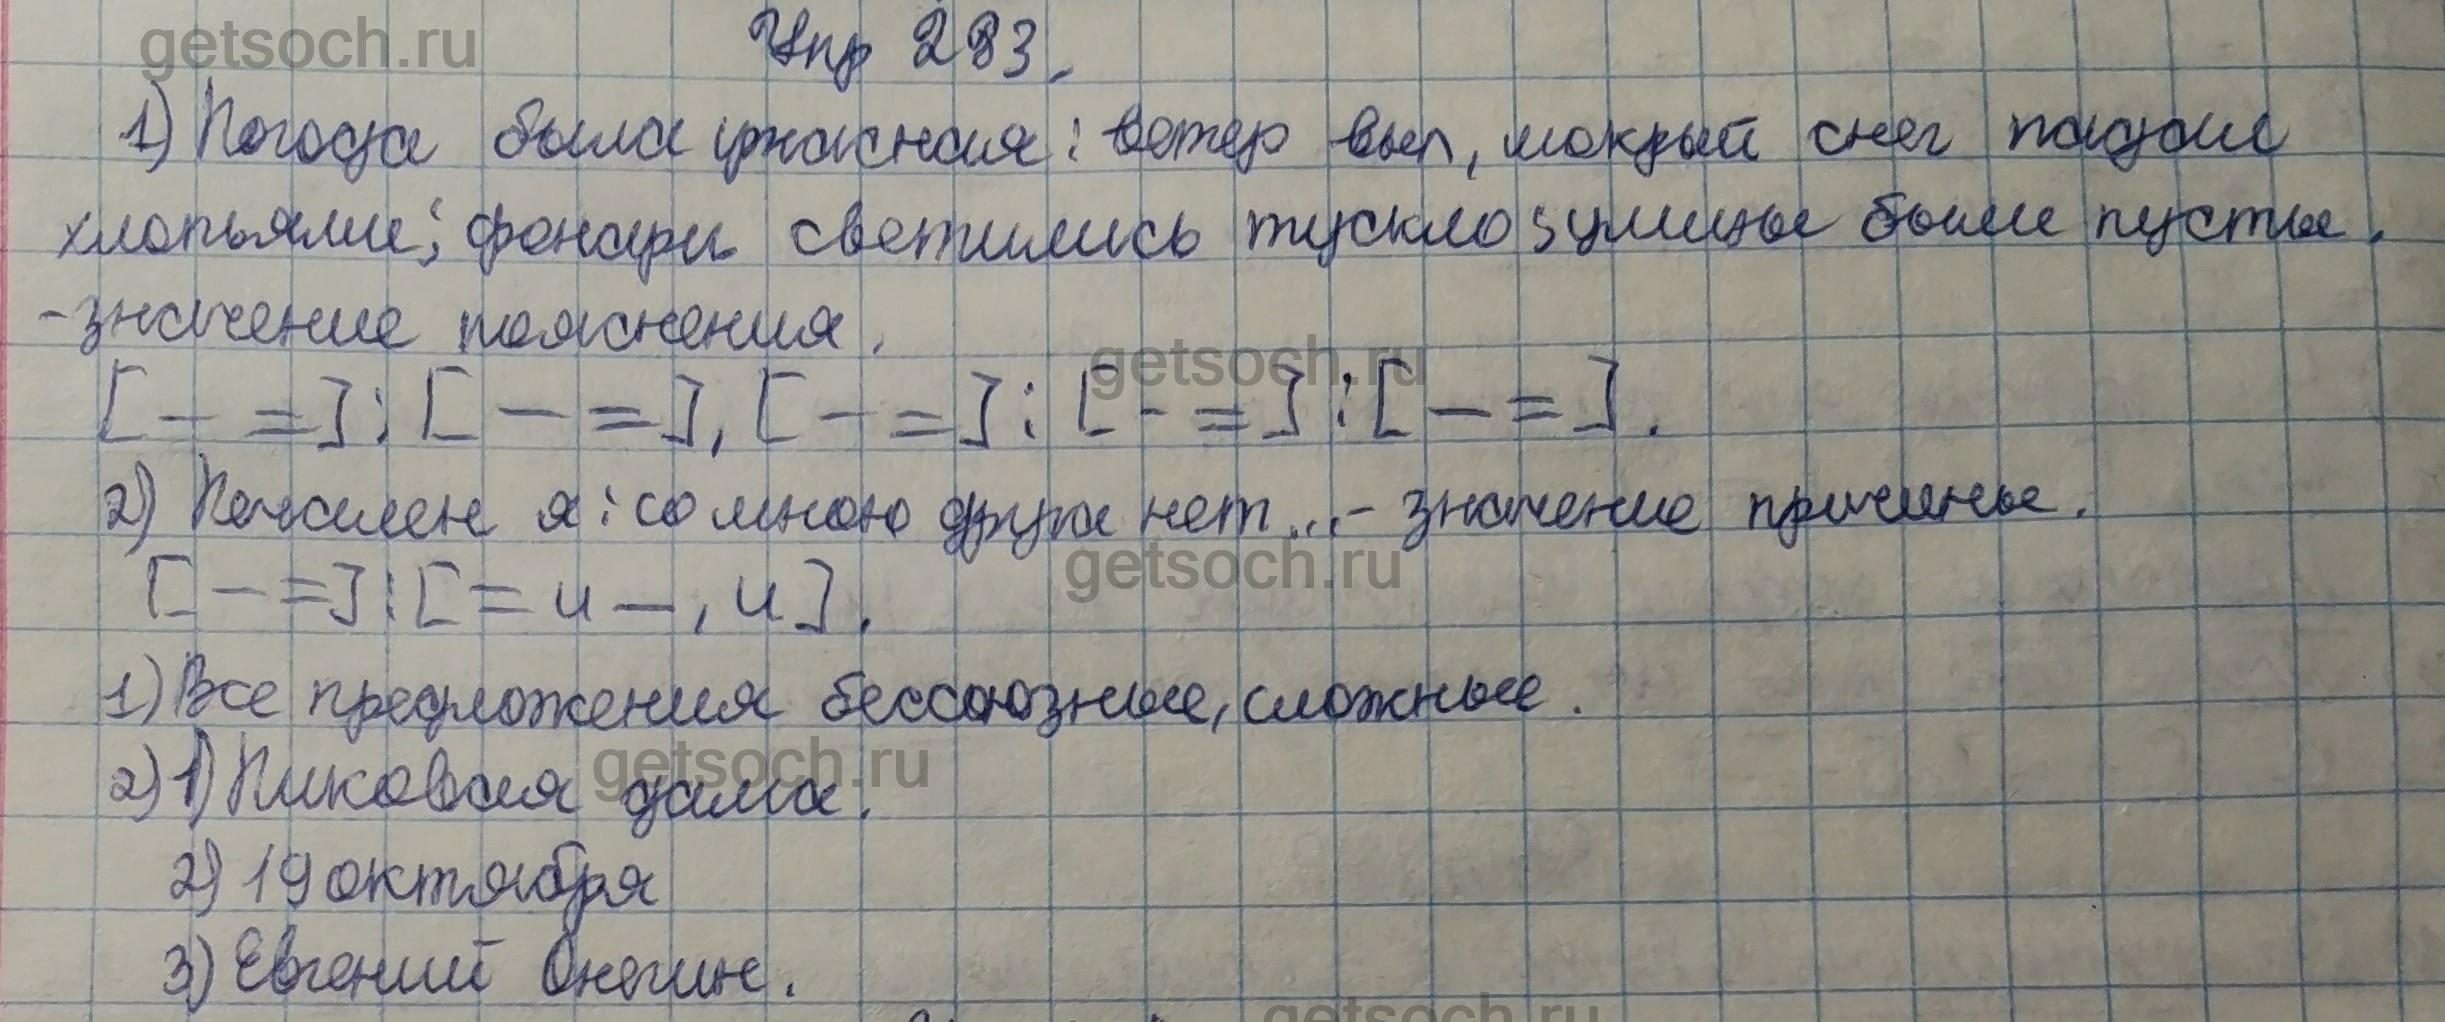 getsoch.ru
Упр 283.
1) Погода была ужасная: ветер выл, мокрый снег падал
хлопьями; фонари светились тускло; улицы были пусты.
- значение пояснения.
getsoch.ru
[— =]: [— =], [— =]: [- =]: [— =].
2) Печален я: со мною друга нет...- значение причины.
getsoch.ru
[— =]: [= и —, и].
1) Все предложения бессоюзные, сложные.
getsoch.ru
2) 1) Пиковая дама.
2) 19 октября
3) Евгений Онегин.
getsoch.ru